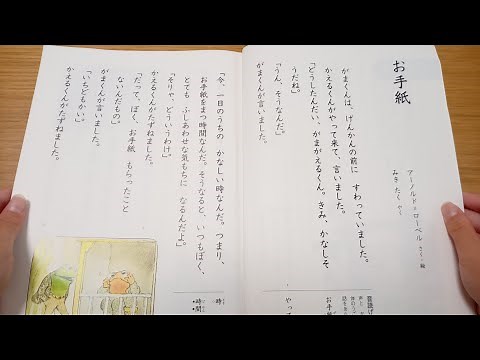 お手紙
アーノルド=ローベル さく・絵
みき たく やく
がまくんは、げんかんの前に すわっていました。
かえるくんがやって来て、言いました。
「どうしたんだい、がまがえるくん。きみ、かなしそ
うだね。」
「うん、そうなんだ。」
がまくんが言いました。
「今、一日のうちの かなしい時なんだ。つまり、
お手紙をまつ時間なんだ。そうなると、いつもぼく、
とても ふしあわせな気もちに なるんだよ。」
「そりゃ、どういうわけ。」
かえるくんがたずねました。
「だって、ぼく、お手紙 もらったこと
ないんだもの。」
がまくんが言いました。
「いちどもかい。」
かえるくんがたずねました。
音読げ
お手紙
やっ
時
時間